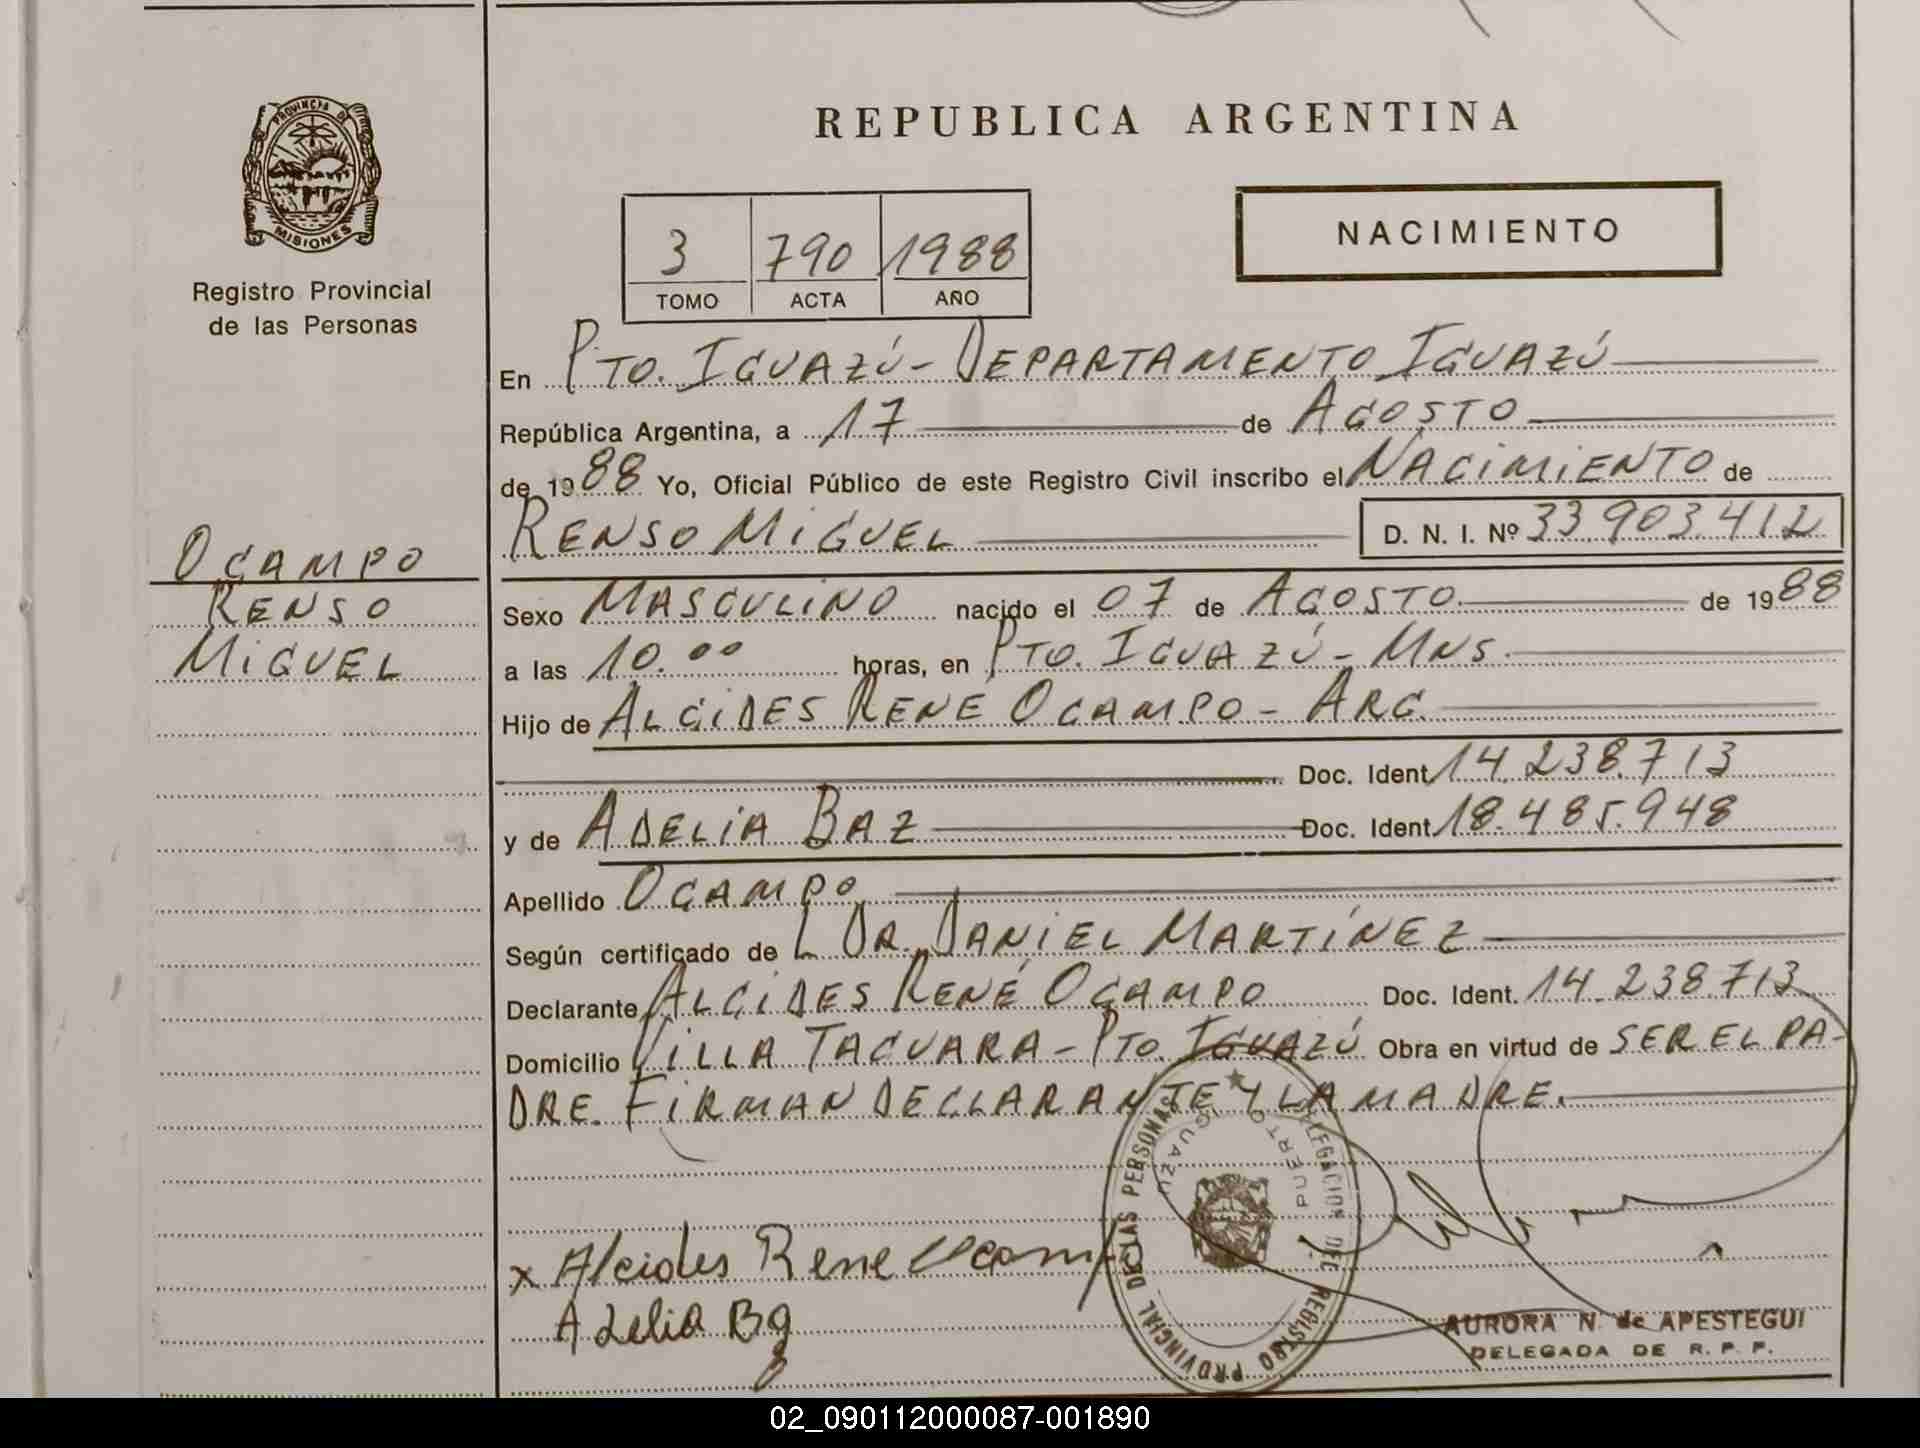 PROVINCIA DE
MISIONES
Registro Provincial
de las Personas
OCAMPO
RENSO
MIGUEL
REPUBLICA ARGENTINA
3 790 1988
TOMO ACTA AÑO
NACIMIENTO
En PTO. IGUAZÚ - DEPARTAMENTO IGUAZÚ
República Argentina, a 17 de AGOSTO
de 1988 Yo, Oficial Público de este Registro Civil inscribo el NACIMIENTO de
RENSO MIGUEL D. N. I. Nº 33.903.412
Sexo MASCULINO nacido el 07 de AGOSTO de 1988
a las 10.00 horas, en PTO. IGUAZÚ - MNS.
Hijo de ALCIDES RENÉ OCAMPO - ARG.
Doc. Ident 14.238.713
y de ADELIA BAZ Doc. Ident. 18.485.948
Apellido OCAMPO
Según certificado de L DR. DANIEL MARTÍNEZ
Declarante ALCIDES RENÉ OCAMPO Doc. Ident. 14.238.713
Domicilio VILLA TACUARA - PTO. IGUAZÚ Obra en virtud de SER EL PA-
DRE. FIRMAN DECLARANTE Y LA MADRE.
DELEGACION DEL REGISTRO PROVINCIAL DE LAS PERSONAS
PUERTO IGUAZU
x Alcides Rene Ocampo
Adelia
AURORA N. de APESTEGUI
DELEGADA DE R. P. P.
02_090112000087-001890